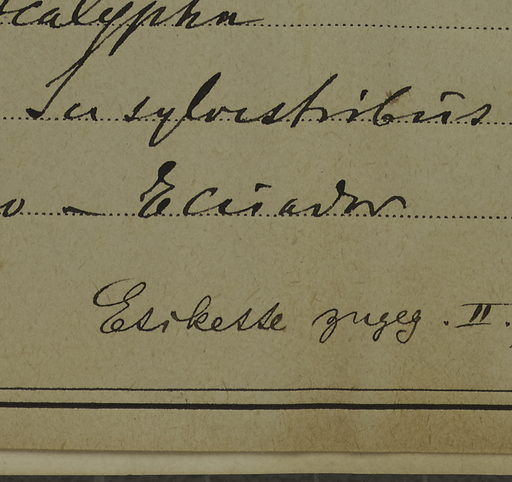 calypha
In sylvestribus
o - Ecuador
Etikette zugeg. II.